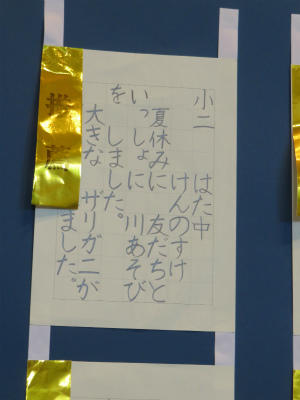 小二 はた中
けんのすけ
夏休みに 友だちと
いっしょに 川あそび
を しました。
大きな ザリガニが
ました。
推薦